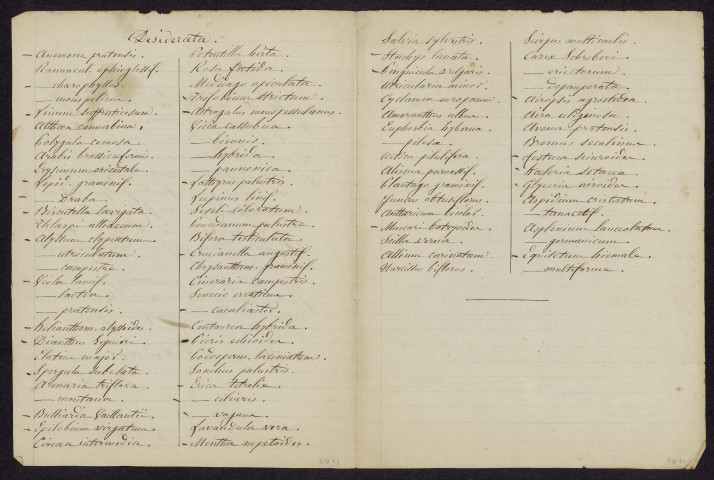 Desiderata.
— Anemone pratensis.
Ranuncul. ophioglossif.
— charophyllos.
— monspeliacus.
— Linum suffruticosum.
Althæa cannabina.
Polygala comosa.
Arabis brassicæformis.
Erysimum orientale.
— Lepid. graminif.
— Draba.
— Biscutella lævigata.
Thlaspi alliaceum.
— Alyssum clypeatum.
— utriculatum.
— campestre.
— Viola lancif.
— lactea.
— pratensis.
— Helianthem. alyssoides.
— Dianthus Seguieri.
Elatine major.
— Spergula subulata.
Arenaria triflora.
— montana.
— Bulliarda Vaillantii.
— Epilobium virgatum.
Circæa intermedia.
Potentilla hirta.
Rosa fœtida.
— Medicago apiculata.
— Trifolium strictum.
— Astragalus monspessulanus.
Vicia cassubica.
— biennis.
— hybrida.
— pannonica.
— Lathyrus palustris.
— Lupinus linif.
— Seseli coloratum.
— Peucedanum palustre.
Bifora testiculata.
— Crucianella angustif.
Chrysanthem. graminif.
Cineraria campestris.
Senecio erraticus.
— cacaliaster.
Centaurea hybrida.
— Picris
Podosperm. laciniatum.
Sonchus palustris.
— Erica tetralix.
— ciliaris.
— vagans.
— Lavandula vera.
— Mentha nepetoides.
Salvia sylvestris.
— Stachys lanata.
— Pinguicula vulgaris.
Utricularia minor.
Cyclamen europæum.
Amaranthus albus.
Euphorbia hyberna.
— pilosa.
Urtica pilulifera.
Alisma parnassif.
Plantago graminif.
Juncus obtusiflorus.
Anthericum bicolor.
— Muscari botryoides.
Scilla verna.
Allium carinatum.
Narcissus biflorus.
Scirpus multicaulis.
Carex Schreberi.
— ericetorum.
— depauperata.
— Airopsis agrostidea.
Aira uliginosa.
Avena pratensis.
Bromus secalinus.
— Festuca sciuroides.
— Kœleria setacea.
— Glyceria airoides.
— Aspidium cristatum.
—
Asplenium lanceolatum.
— germanicum.
— Equisetum hiemale.
— multiforme.